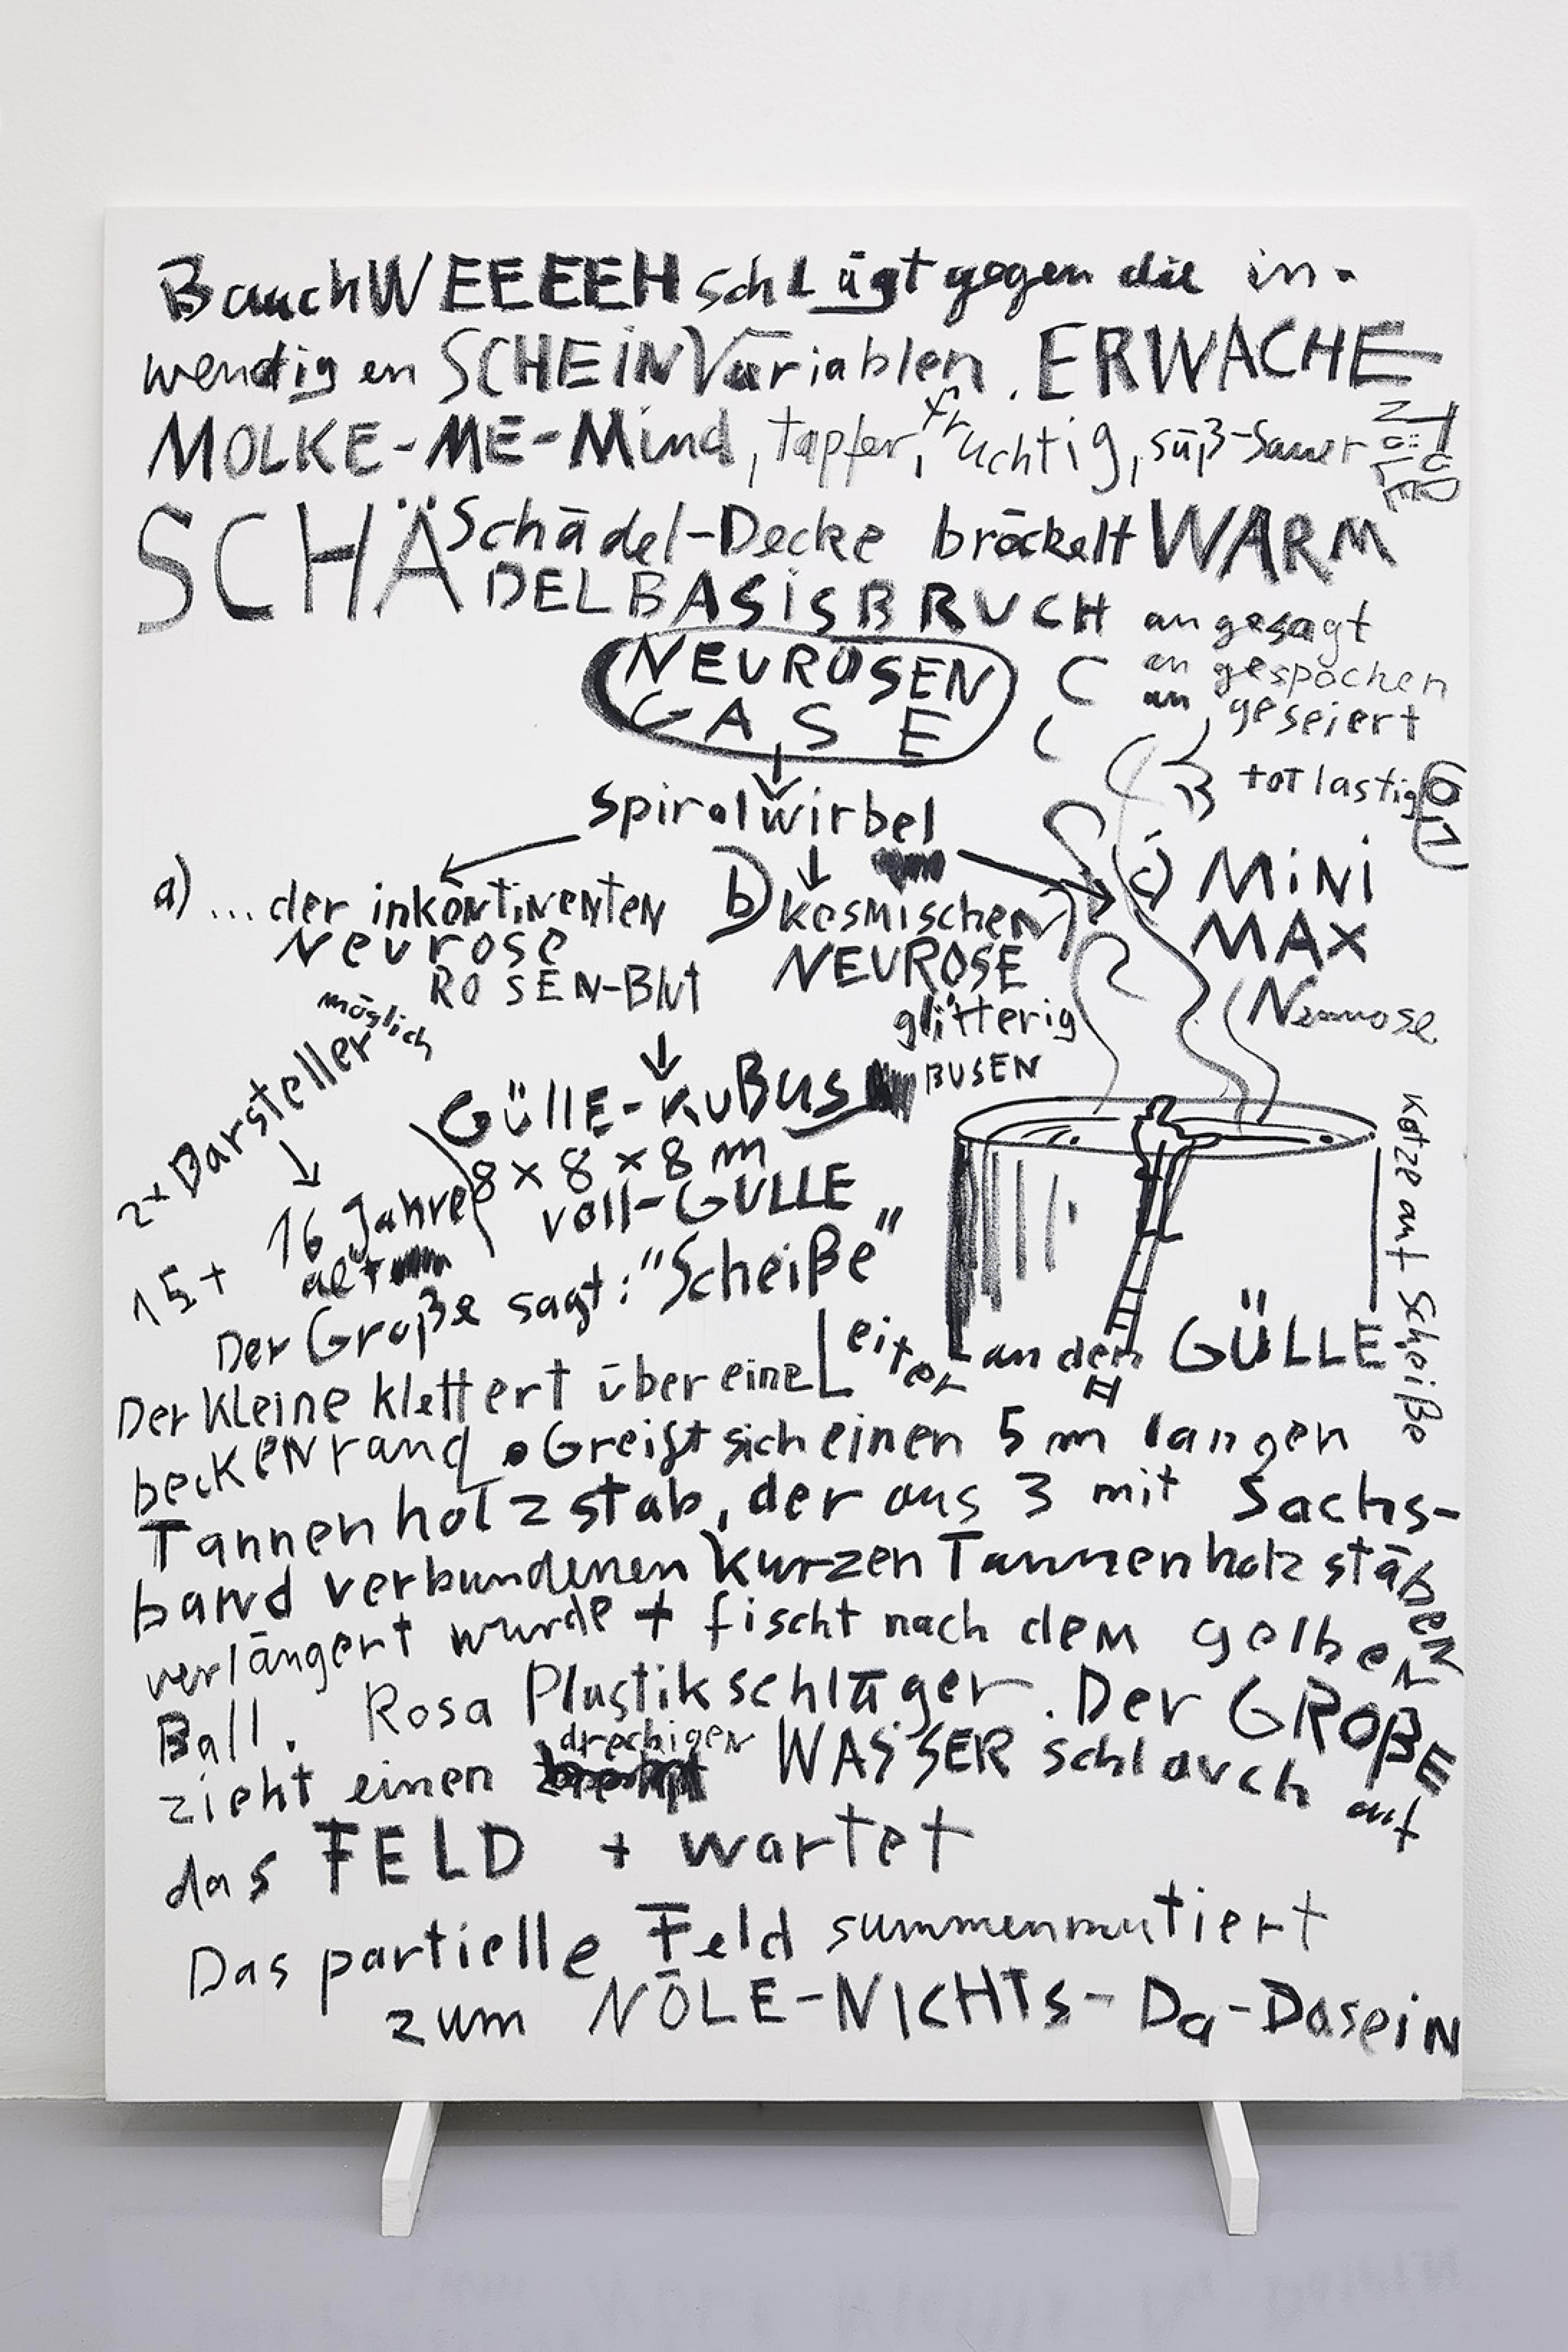 BauchWEEEEH schlägt gegen die in-
wendigen SCHEiNVariablen. ERWACHE
MOLKE-ME-Mind, tapfer, fruchtig, süß-sauer
SCHÄ Schädel-Decke bröckelt WARM
DELBASiSBRUCH angesagt
NEUROSEN an gespochen
GASE an geseiert
tot lastig
spiralwirbel
a) ...der inkontinenten b) kosmischen c) MiNi
Neurose NEUROSE MAX
ROSEN-Blut glitterig Neurose
möglich BUSEN
2x Darsteller
GüllE-KuBus
8 x 8 x 8 m
voll-GÜLLE
15 + 16 Jahre
alt
Kotze auf Scheiße
Der Große sagt: "Scheiße"
Der Kleine klettert über eine Leiter an dem GÜLLE
beckenrand. Greift sich einen 5 m langen
Tannenholzstab, der aus 3 mit Sachs-
band verbundenen kurzen Tannenholzstäben
verlängert wurde + fischt nach dem gelben
Ball. Rosa Plastikschläger. Der GROßE
zieht einen dreckigen WASSERschlauch auf
das FELD + wartet
Das partielle Feld summenmutiert
zum NÖLE-NICHTS-Da-Dasein